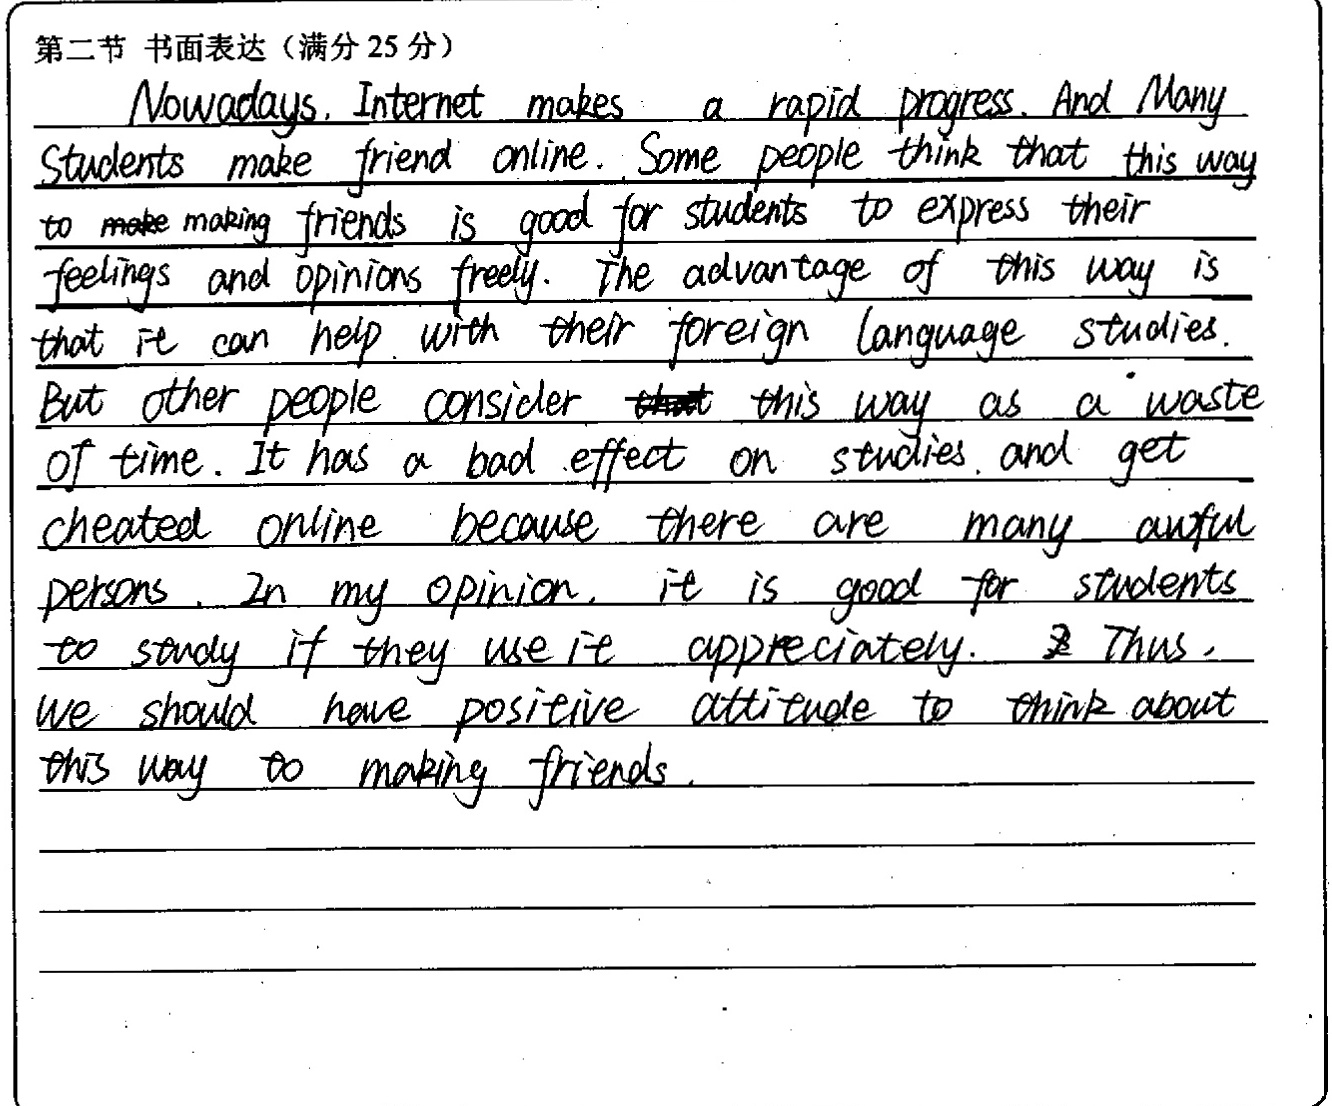 第二节 书面表达（满分 25 分）
Nowadays, Internet makes a rapid progress. And Many
Students make friend online. Some people think that this way
to make making friends is good for students to express their
feelings and opinions freely. The advantage of this way is
that it can help with their foreign language studies.
But other people consider that this way as a waste
of time. It has a bad effect on studies, and get
cheated online because there are many awful
persons. In my opinion, it is good for students
to study if they use it appreciately. Thus,
we should have positive attitude to think about
this way to making friends.